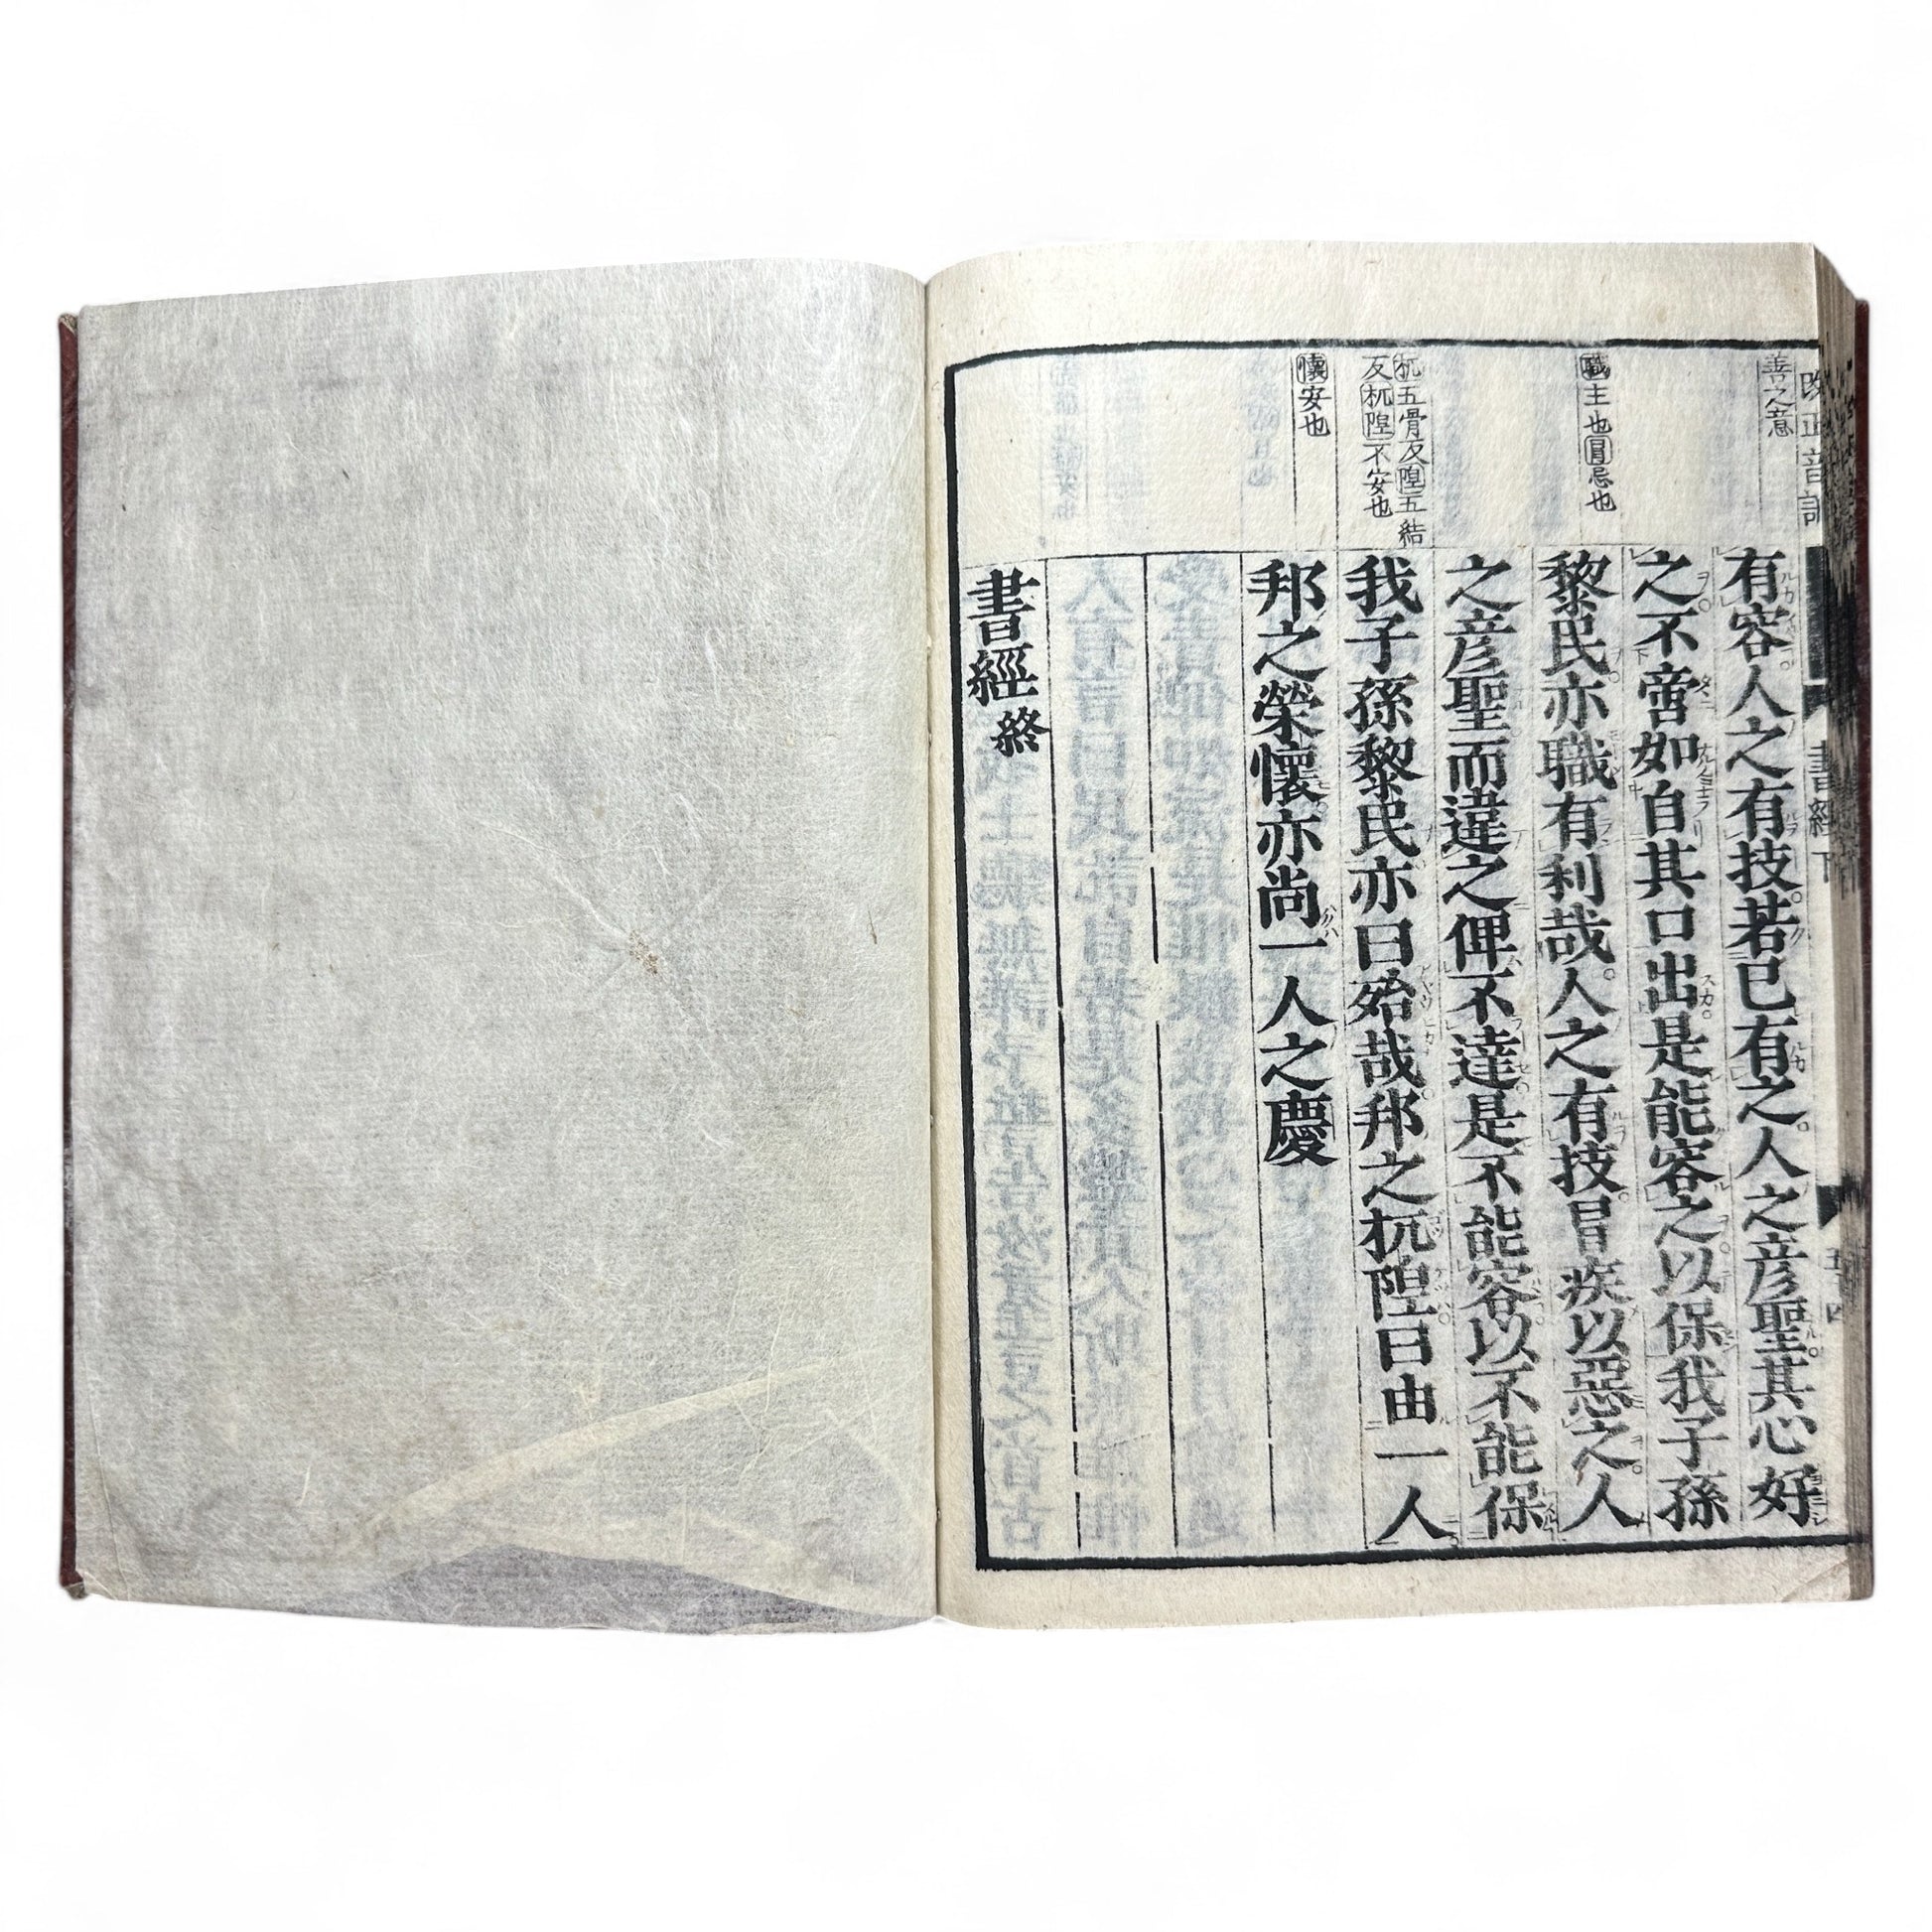 改正音訓
書經下
五十四
善之意
職主也冒忌也
杌五骨反隉五結
反杌隉不安也
懷安也
有容人之有技若己有之人之彦聖其心好
之不啻如自其口出是能容之以保我子孫
黎民亦職有利哉人之有技冒疾以惡之人
之彦聖而違之俾不達是不能容以不能保
我子孫黎民亦曰殆哉邦之杌隉曰由一人
邦之榮懷亦尚一人之慶
書經終